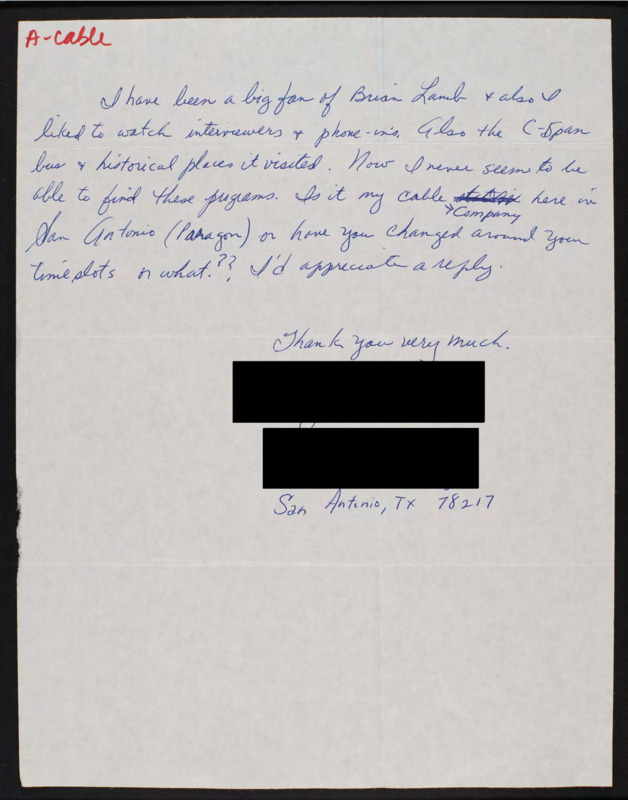 A-cable
I have been a big fan of Brian Lamb & also I
liked to watch interviewers & phone-ins. Also the C-Span
bus & historical places it visited. Now I never seem to be
able to find these programs. Is it my cable here in
Company
San Antonio (Paragon) or have you changed around your
time slots or what.?? I'd appreciate a reply.
Thank you very much.
San Antonio, TX 78217